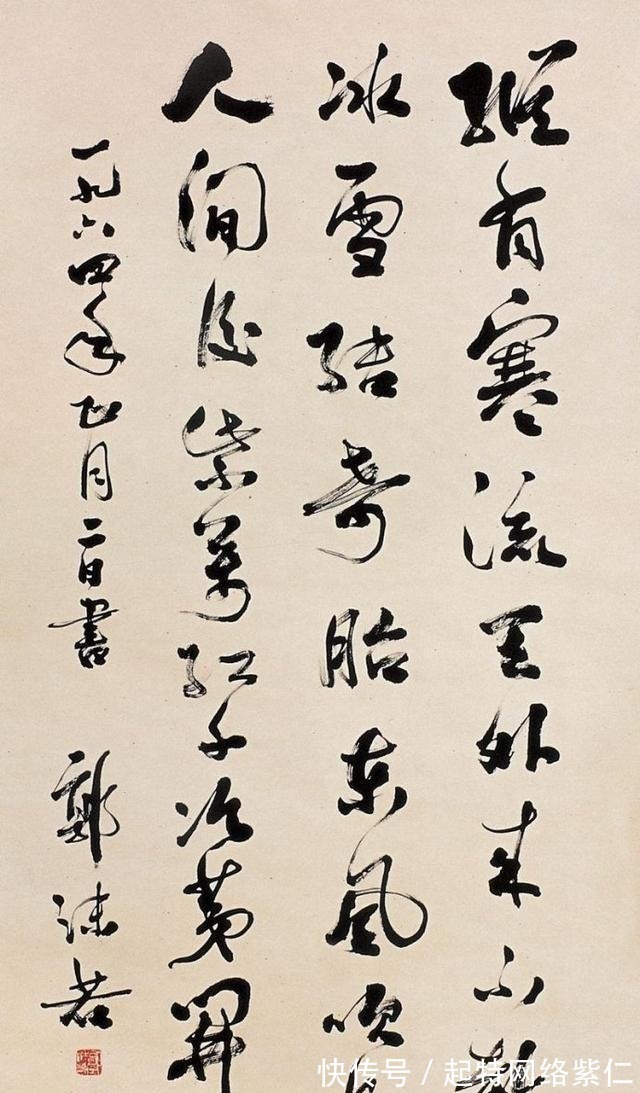 縱有寒流天外来不教
冰雪結奇胎東風吹
人間後紫萬紅千次第開
一九六四年正月二日書
郭沫若
快传号 / 起特网络紫仁